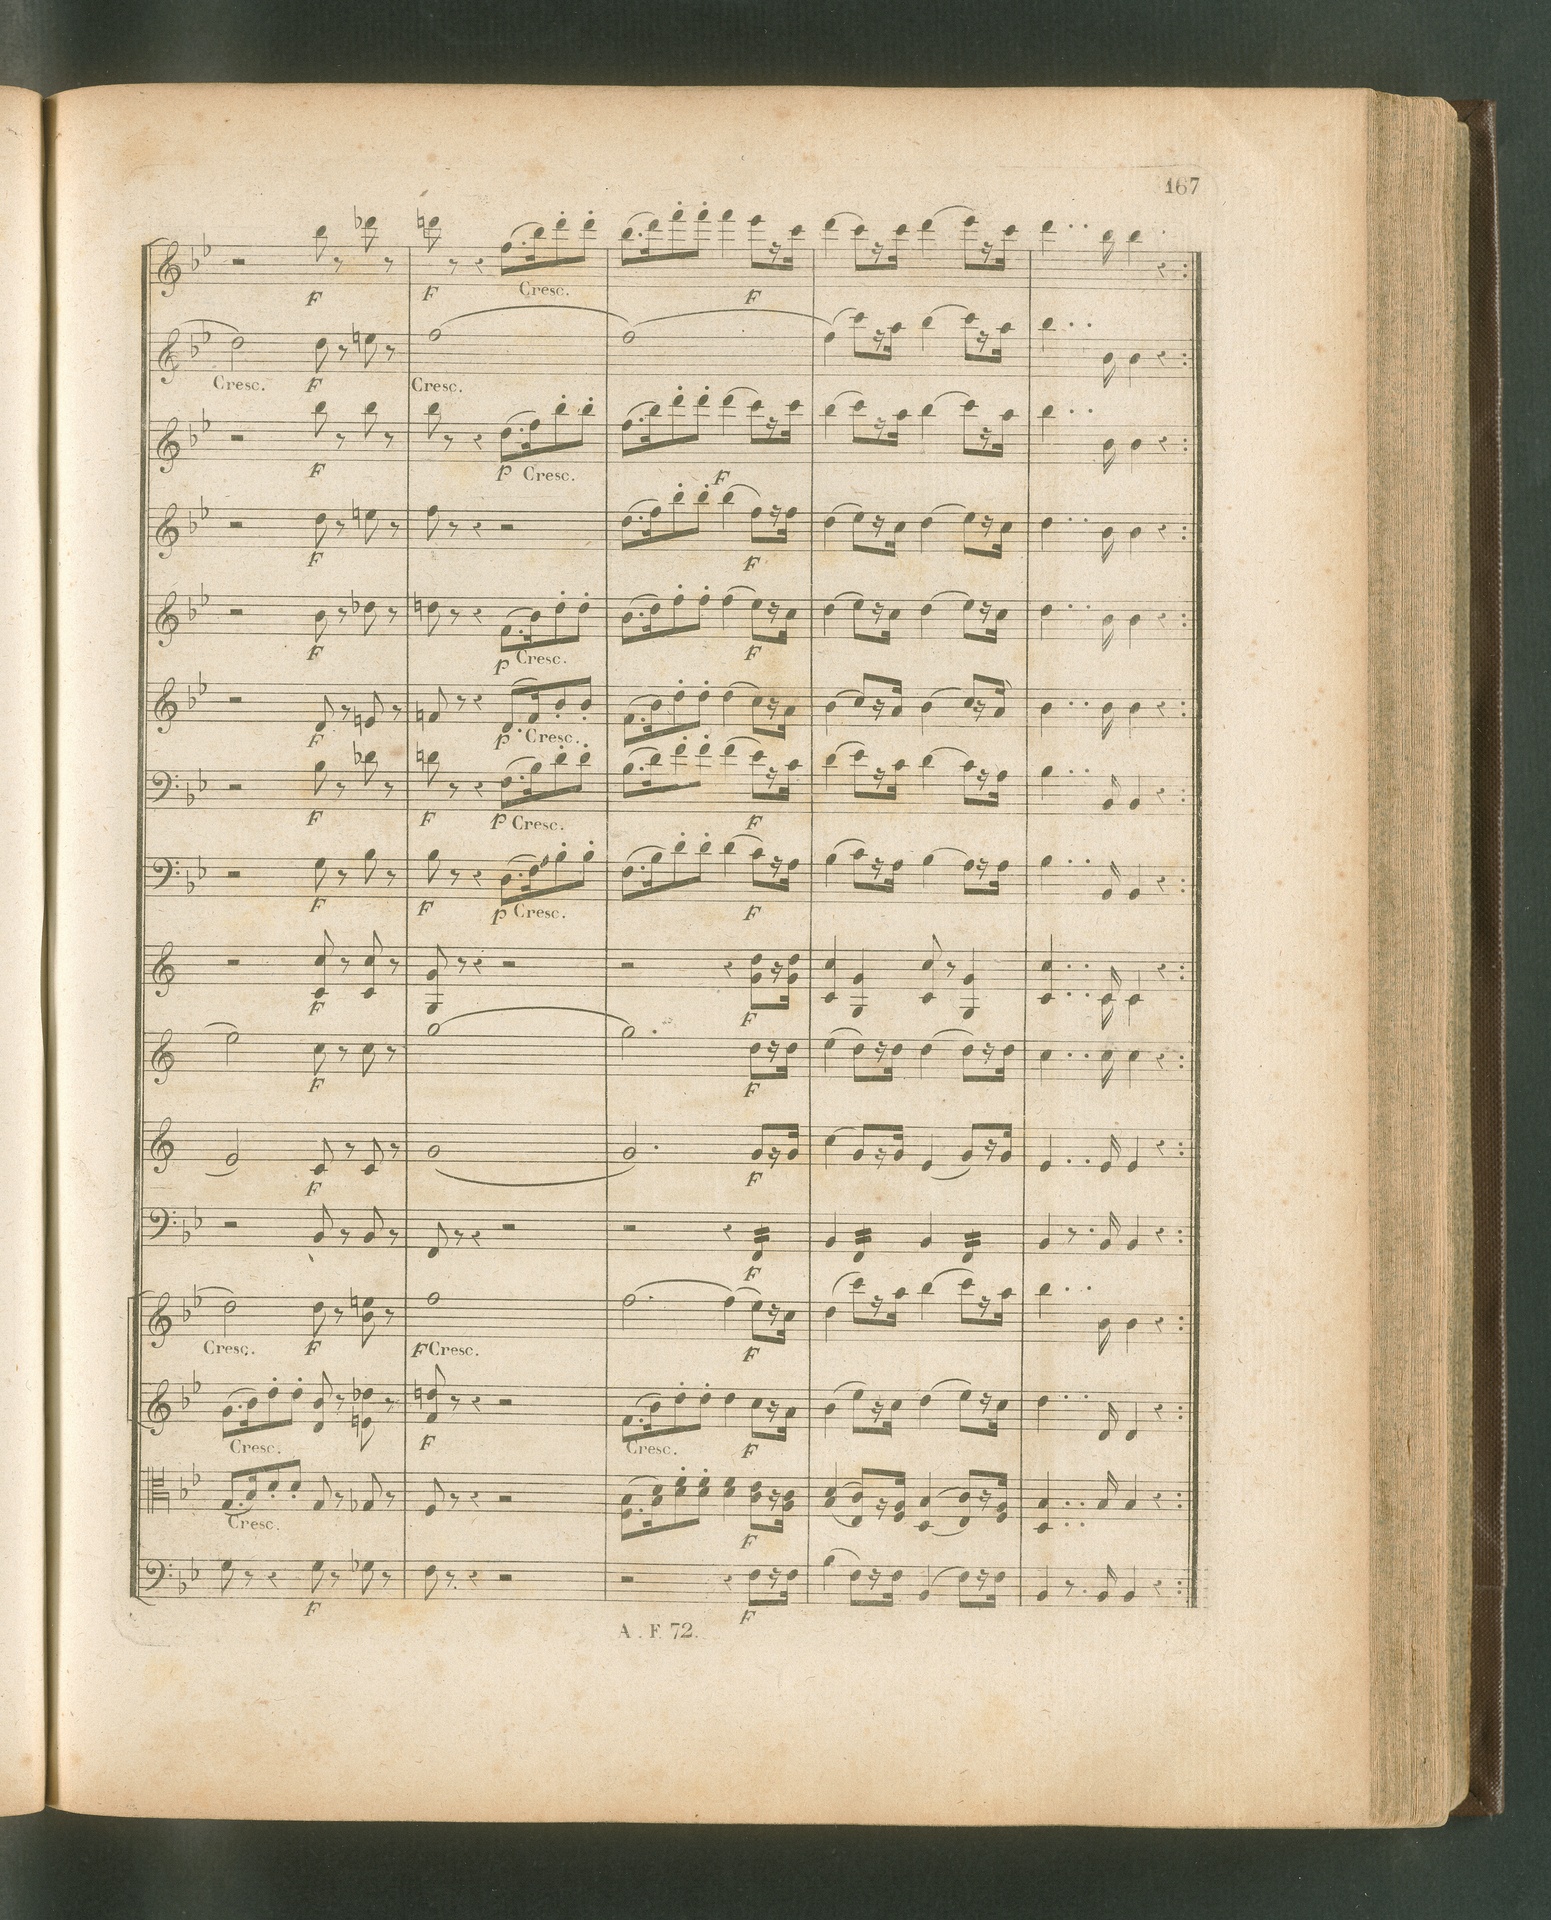 167
F F Cresc. F
Cresc. F Cresc.
F p Cresc. F
F F
F p Cresc. F
F p Cresc.
F F p Cresc. F
F F p Cresc. F
F F
F F
F F
F
Cresc. F F Cresc. F
Cresc. F Cresc. F
Cresc. F
F F
A. F. 72.